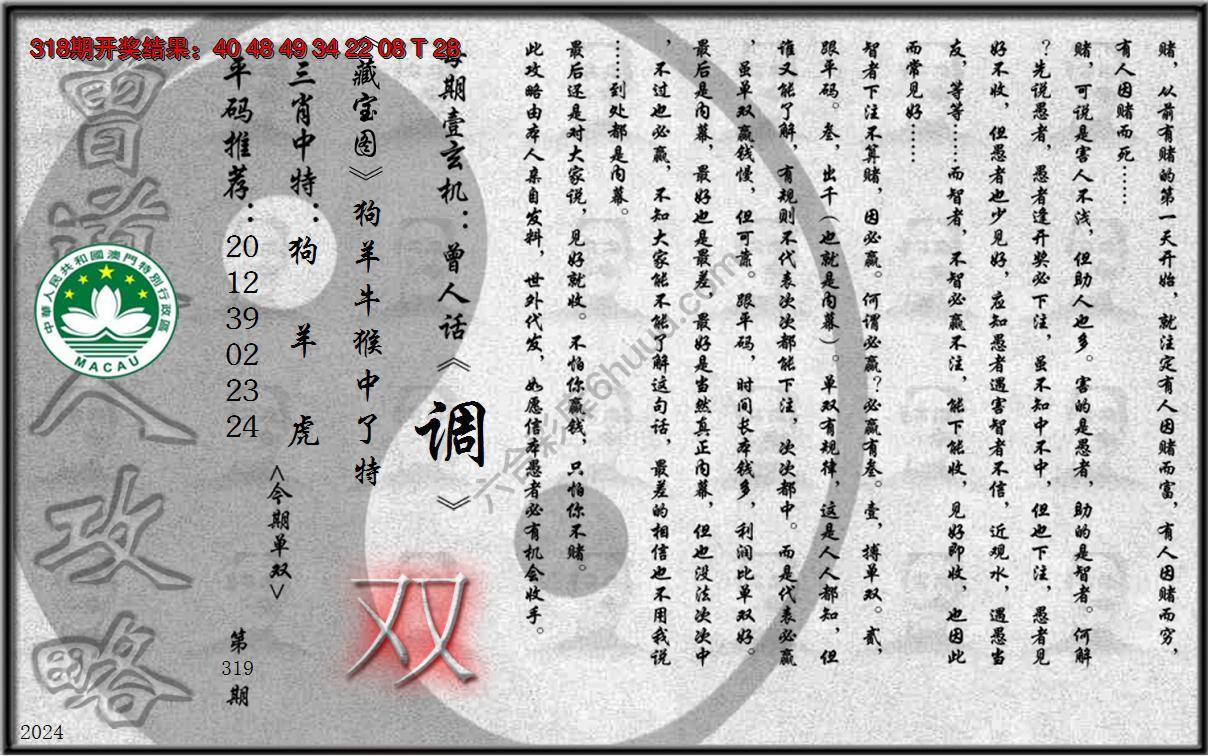 318期开奖结果：40 48 49 34 22 08 T 28
赌，从前有赌的第一天开始，就注定有人因赌而富，有人因赌而穷，
有人因赌而死……
赌，可说是害人不浅，但助人也多。害的是愚者，助的是智者。何解
？先说愚者，愚者逢开奖必下注，虽不知中不中，但也下注，愚者见
好不收，但愚者也少见好，应知愚者遇害智者不信，近观水，遇愚当
友，等等……而智者，不智必赢不注，能下能收，见好即收，也因此
而常见好……
智者下注不算赌，因必赢。何谓必赢？必赢有叁。壹，搏单双。贰，
跟平码。叁，出千（也就是内幕）。单双有规律，这是人人都知，但
谁又能了解，有规则不代表次次都能下注，次次都中。而是代表必赢
，虽单双赢钱慢，但可靠。跟平码，时间长本钱多，利润比单双好。
最后是内幕，最好也是最差，最好是当然真正内幕，但也没法次次中
，不过也必赢，不知大家能不能了解这句话，最差的相信也不用我说
……到处都是内幕。
最后还是对大家说，见好就收。不怕你赢钱，只怕你不赌。
此攻略由本人亲自发料，世外代发，如愿信本愚者必有机会收手。
每期壹玄机：曾人话《调》
《藏宝图》狗羊牛猴中了特
双
三肖中特：狗 羊 虎
<今期单双>
平码推荐：20 12 39 02 23 24
第319期
曾道人攻略
中華人民共和國澳門特別行政區
MACAU
2024